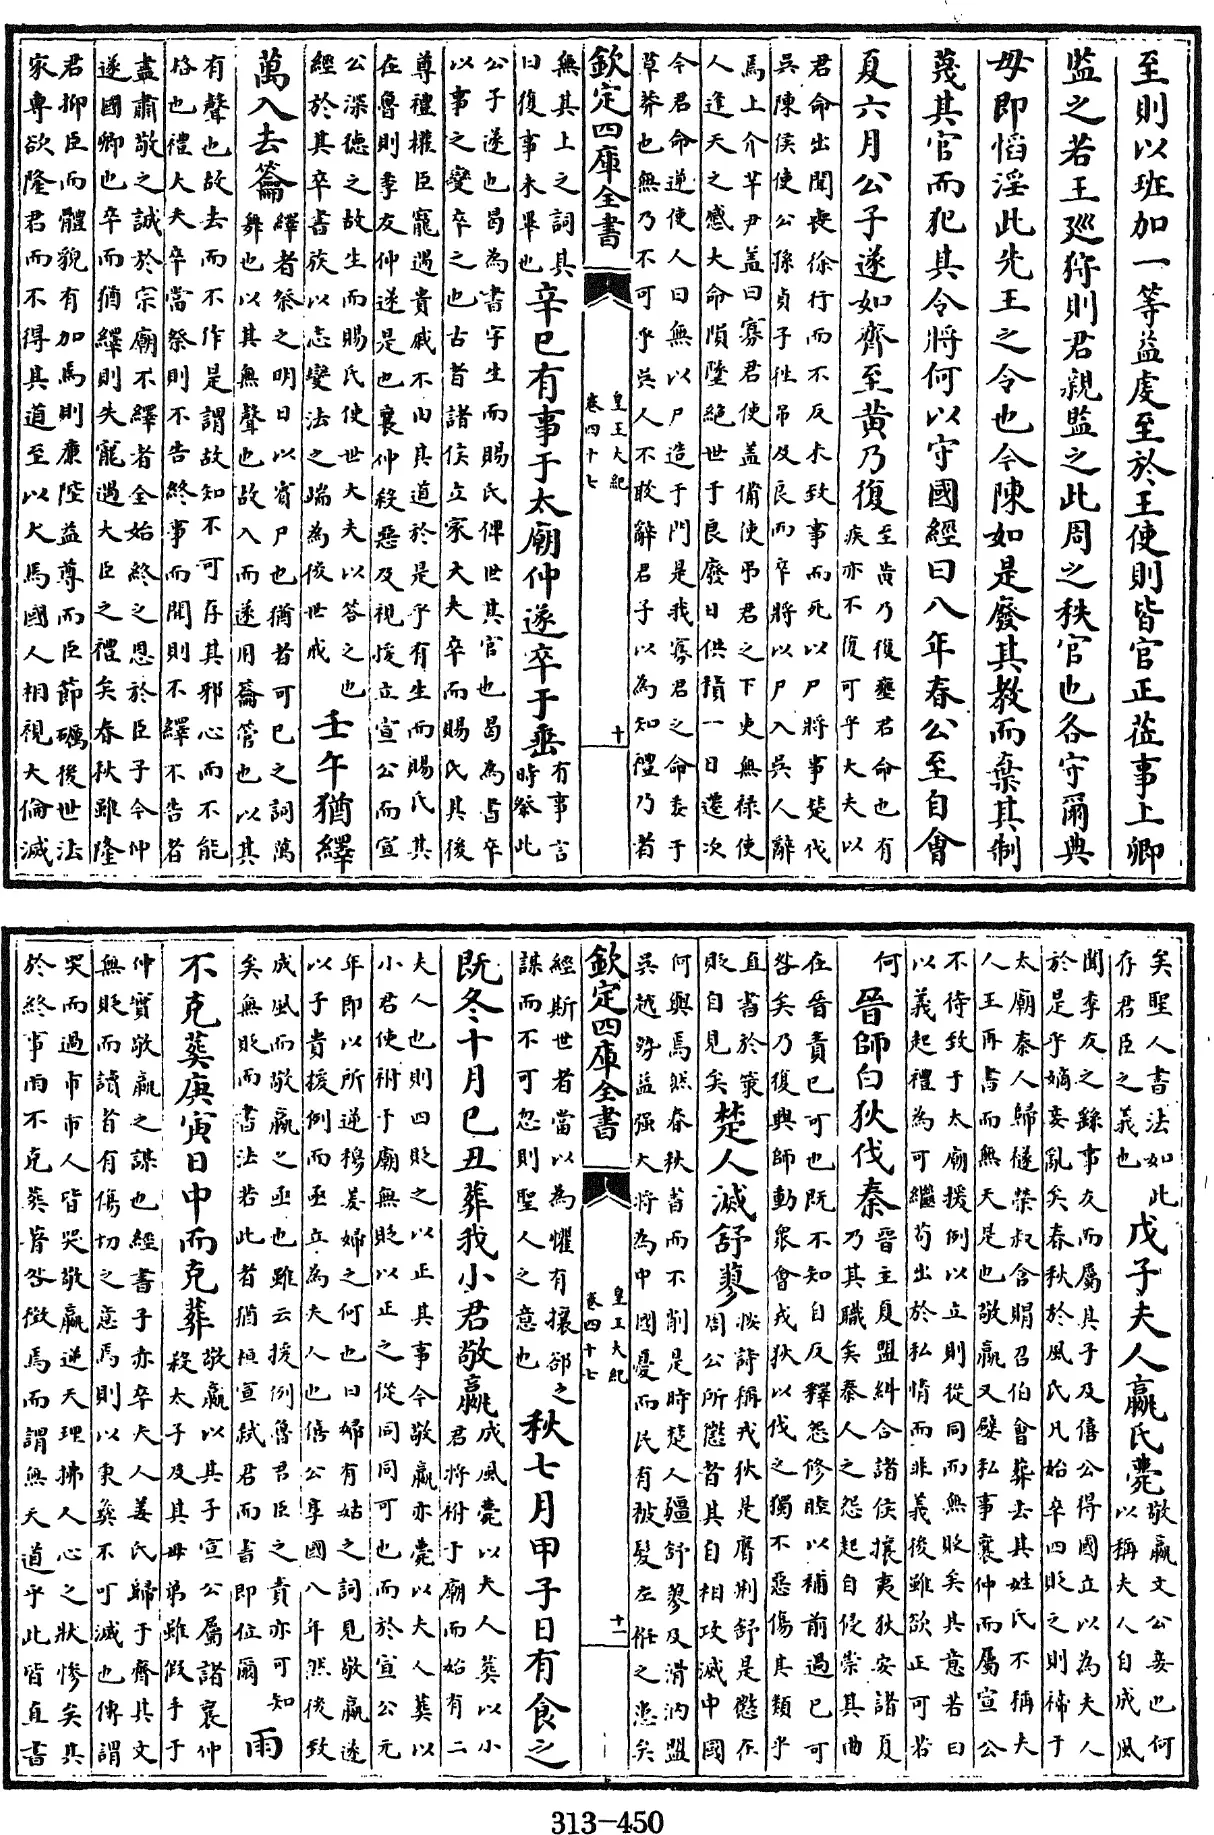 至則以班加一等益虔至於王使則皆官正莅事上卿
監之若王廵狩則君親監之此周之秩官也各守爾典
毋即慆淫此先王之令也今陳如是廢其教而棄其制
蔑其官而犯其令將何以守國經曰八年春公至自會
夏六月公子遂如齊至黄乃復
至黄乃復壅君命也有
疾亦不復可乎大夫以
君命出聞喪徐行而不反未致事而死以尸將事楚伐
吳陳侯使公孫貞子徃吊及良而卒將以尸入吳人辭
焉上介芋尹盖曰寡君使盖備使吊君之下吏無禄使
人逢天之慼大命隕墜絶世于良廢日供積一日遷次
今君命逆使人曰無以尸造于門是我寡君之命委于
草莽也無乃不可乎吳人不敢辭君子以為知禮乃者
欽定四庫全書
皇王大紀
卷四十七
十
無其上之詞具
曰復事未畢也
辛巳有事于太廟仲遂卒于垂
有事言
時祭此
公子遂也曷為書字生而賜氏俾世其官也曷為書卒
以事之變卒之也古者諸侯立家大夫卒而賜氏其後
尊禮權臣寵遇貴戚不由其道於是乎有生而賜氏其
在魯則季友仲遂是也襄仲殺惡及視援立宣公而宣
公深德之故生而賜氏使世大夫以荅之也
經於其卒書族以志變法之端為後世戒
壬午猶繹
萬入去籥
繹者祭之明日以賓尸也猶者可已之詞萬
舞也以其無聲也故入而遂用籥管也以其
有聲也故去而不作是謂故知不可存其邪心而不能
恪也禮大夫卒當祭則不告終事而聞則不繹不告者
盡肅敬之誠於宗廟不繹者全始終之恩於臣子今仲
遂國卿也卒而猶繹則失寵遇大臣之禮矣春秋雖隆
君抑臣而體貌有加焉則廉陛益尊而臣節礪後世法
家專欲隆君而不得其道至以犬馬國人相視大倫滅
矣聖人書法如此
存君臣之義也
戊子夫人嬴氏薨
敬嬴文公妾也何
以稱夫人自成風
聞季友之繇事友而屬其子及僖公得國立以為夫人
於是乎嫡妾亂矣春秋於風氏凡始卒四貶之則禘于
太廟秦人歸襚榮叔含賵召伯會葬去其姓氏不稱夫
人王再書而無天是也敬嬴又嬖私事襄仲而屬宣公
不待致于太廟援例以立則從同而無貶矣其意若曰
以義起禮為可繼苟出於私情而非義後雖欲正可若
何
晉師白狄伐秦
晉主夏盟糾合諸侯攘夷狄安諸夏
乃其職矣秦人之怨起自侵崇其曲
在晉責已可也既不知自反釋怨修睦以補前過已可
咎矣乃復興師動衆會戎狄以伐之獨不惡傷其類乎
直書於策
貶自見矣
楚人滅舒蓼
按詩稱戎狄是膺荆舒是懲在
周公所懲昔其自相攻滅中國
何與焉然春秋書而不削是時楚人疆舒蓼及滑汭盟
吳越勢益强大將為中國憂而民有被髮左衽之患矣
欽定四庫全書
皇王大紀
卷四十七
十一
經斯世者當以為懼有攘郤之
謀而不可忽則聖人之意也
秋七月甲子日有食之
既冬十月已丑葬我小君敬嬴
成風薨以夫人葬以小
君將祔于廟而始有二
夫人也則四貶之以正其事今敬嬴亦薨以夫人葬以
小君使祔于廟無貶以正之從同同可也而於宣公元
年即以所逆穆姜婦之何也曰婦有姑之詞見敬嬴遂
以子貴援例而亟立為夫人也僖公享國八年然後致
成風而敬嬴之亟也雖云援例魯君臣之責亦可知
矣無貶而書法若此者猶桓宣弑君而書即位爾
雨
不克葬庚寅日中而克葬
敬嬴以其子宣公屬諸襄仲
殺太子及其母弟雖假手于
仲實敬嬴之謀也經書子亦卒夫人姜氏歸于齊其文
無貶而讀者有傷切之意焉則以秉彛不可滅也傳謂
哭而過市市人皆哭敬嬴逆天理拂人心之狀慘矣其
於終事雨不克葬著咎徵焉而謂無天道乎此皆直書
313-450